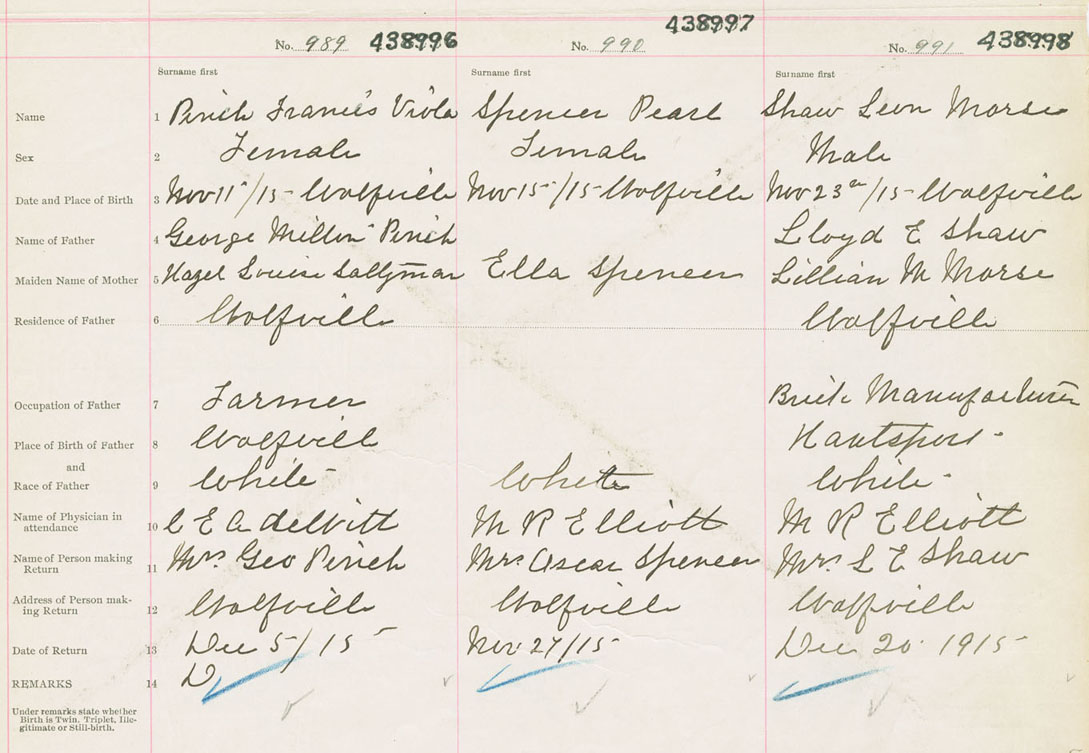 No. 989 438996 No. 990 438997 No. 991 438998
Surname first Surname first Surname first
Name 1 Pinch Francis Viola Spencer Pearl Shaw Leon Morse
Sex 2 Female Female Male
Date and Place of Birth 3 Nov 11/15 - Wolfville Nov 15/15 - Wolfville Nov 23rd/15 - Wolfville
Name of Father 4 George Milton Pinch Lloyd E Shaw
Maiden Name of Mother 5 Hazel Louise Saltzman Ella Spencer Lillian M Morse
Residence of Father 6 Wolfville Wolfville
Occupation of Father 7 Farmer Brick Manufacturer
Place of Birth of Father 8 Wolfville Hantsport -
and
Race of Father 9 White White White -
Name of Physician in
attendance 10 C E A deWitt M R Elliott M R Elliott
Name of Person making
Return 11 Mrs. Geo Pinch Mrs. Oscar Spencer Mrs. L E Shaw
Address of Person mak-
ing Return 12 Wolfville Wolfville Wolfville
Date of Return 13 Dec 5/15 Nov 27/15 Dec 20. 1915
REMARKS 14 D
Under remarks state whether
Birth is Twin, Triplet, Ille-
gitimate or Still-birth.